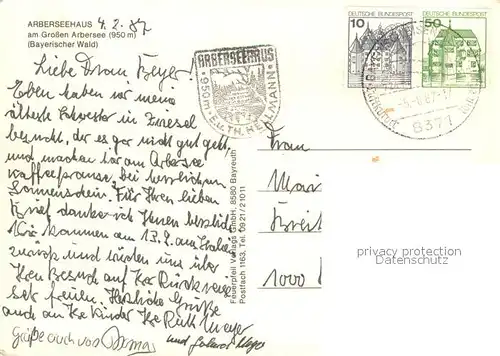 ARBERSEEHAUS 4.2.87
am Großen Arbersee (950 m)
(Bayerischer Wald)
Liebe Frau Beyer!
Eben haben wir meine
älteste Schwester in Zwiesel
besucht, der es gar nicht gut geht,
und machen hier am Arbersee
Kaffeepause, bei herrlichem
Sonnenschein. Für Ihren lieben
Brief danke ich Ihnen herzlich
Wir kommen am 13.2. am
zurück und würden uns über
Ihren Besuch auf Ihrer Rückreise
sehr freuen. Herzliche Grüße
auch an Ihre Kinder Ihre Ruth Meyer
Grüße auch von und
ARBERSEEHAUS
950m · E.u.TH. HELLMANN
Feuerpfeil Verlags GmbH, 8580 Bayreuth
Postfach 1163, Tel. 09 21/21011
10 DEUTSCHE BUNDESPOST
50 DEUTSCHE BUNDESPOST
8371
Frau
1000
privacy protection
Datenschutz